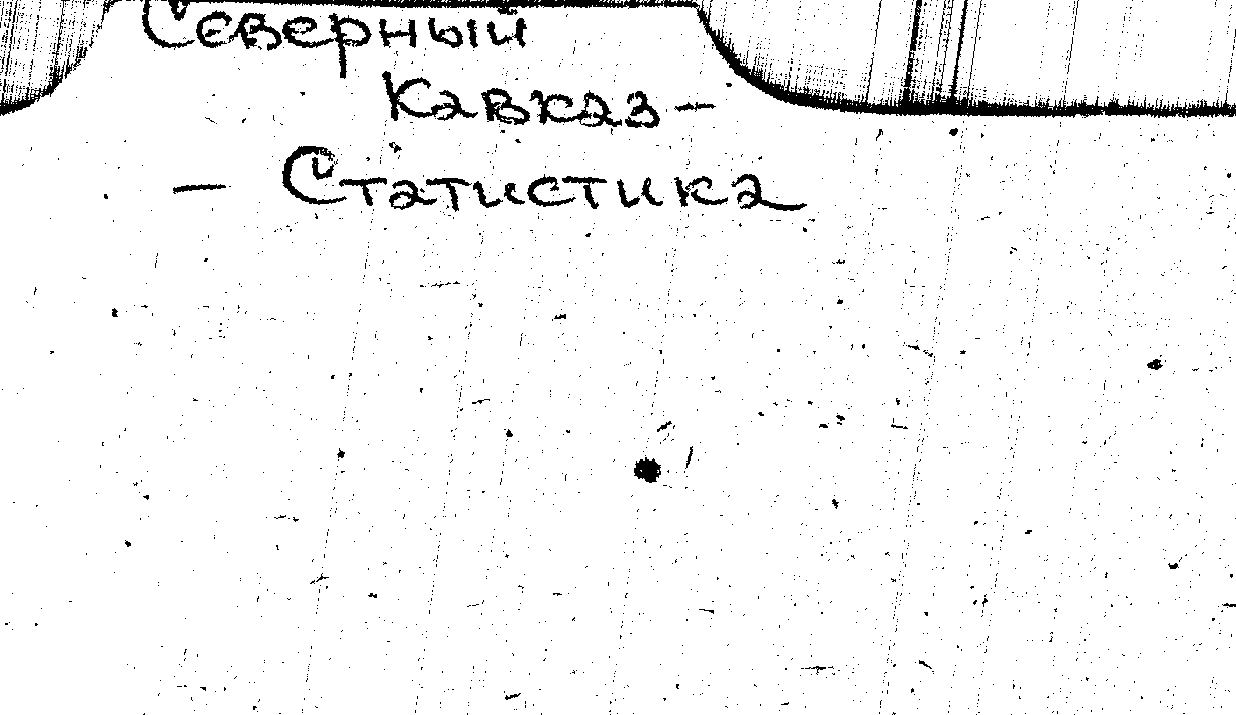 Северный
Кавказ –
– Статистика